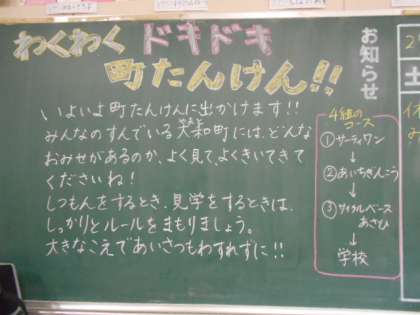 わくわく ドキドキ
町たんけん!!
いよいよ町たんけんに出かけます!!
みんなのすんでいる 和町には、どんな
おみせがあるのか、よく見て、よくきいてきて
くださいね!
しつもんをするとき、見学をするときは、
しっかりとルールをまもりましょう。
大きなこえであいさつもわすれずに!!
4組の
コース
①サーティワン
↓
②あいちぎんこう
↓
③サイクルベース
あさひ
↓
学校
お知らせ
土